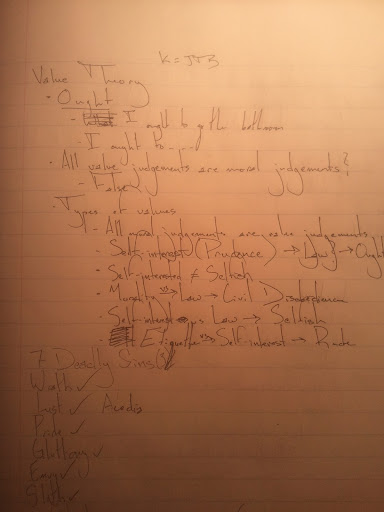 K = JTB
Value Theory
• Ought
- I ought to go to the bathroom
- I ought to
• All value judgements are moral judgements?
- False
• Types of values
- All moral judgements are value judgements
- Self-interest (Prudence) → Law } → Ought
- Self-interested ≠ Selfish
- Morality vs Law → Civil Disobedience
- Self-interest vs Law → Selfish
- Etiquette vs Self-interest → Rude
7 Deadly Sins
Wrath ✓
Lust ✓ Acedia
Pride ✓
Gluttony ✓
Envy ✓
Sloth ✓